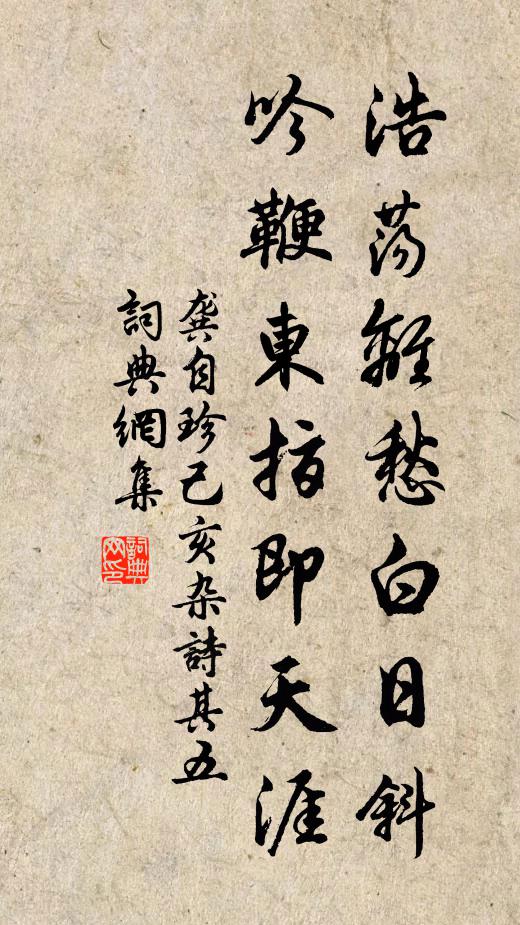 浩蕩離愁白日斜
吟鞭東指即天涯
龔自珍己亥杂詩其五
詞典網集
詞典網印